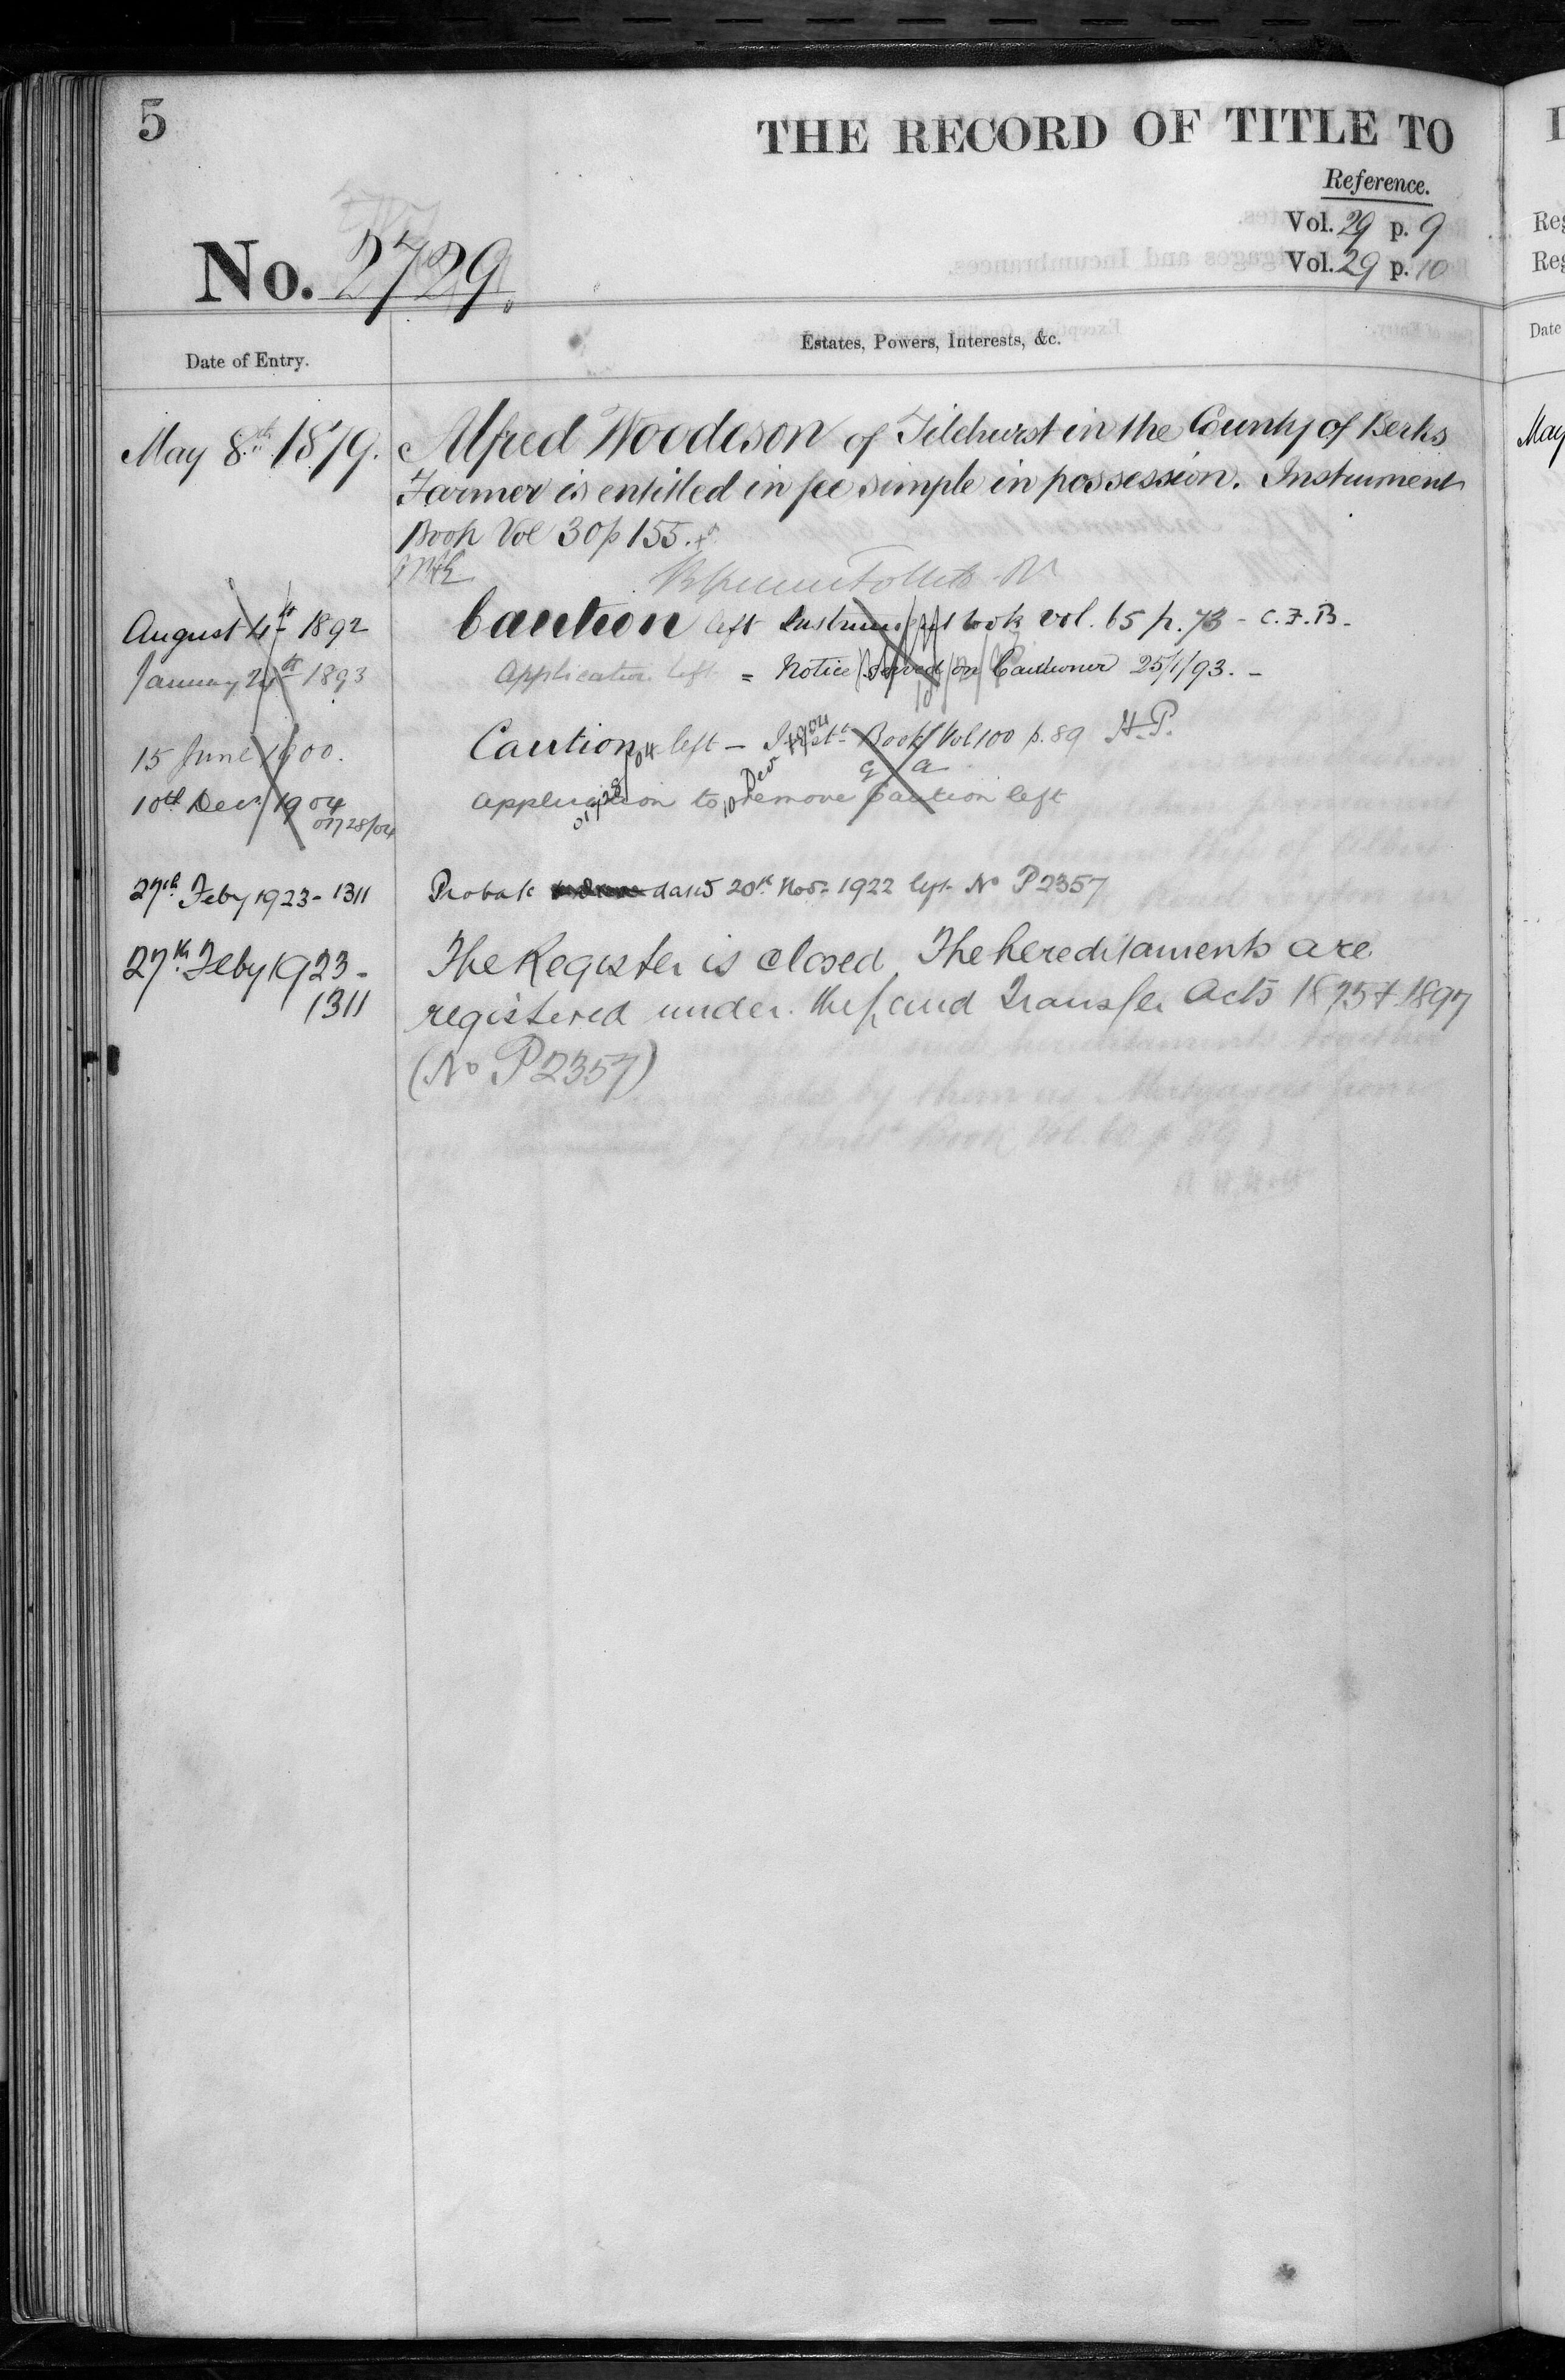 5
THE RECORD OF TITLE TO
Reference.
Vol. 29 p. 9
Vol. 29 p. 10
No. 2729.
Date of Entry.
Estates, Powers, Interests, &c.
May 8th 1879.
Alfred Woodeson of Tilehurst in the County of Berks
Farmer is entitled in fee simple in possession. Instrument
Book Vol 30 p 155.
August 4th 1892
Caution left Instrument book vol. 65 p. 73 - C.F.B.
January 24th 1893
Application left = Notice served on Cautioner 25/1/93. -
15 June 1900.
Caution left - Inst. Book Vol 100 p. 89 H.P.
10th Decr. 1904
Application to remove Caution left
27th Feby 1923 - 1311
Probate dated 20th Novr 1922 left No P2357
27th Feby 1923 -
1311
The Register is closed The hereditaments are
registered under the Land Transfer Acts 1875 & 1897
(No P2357)
Date
May